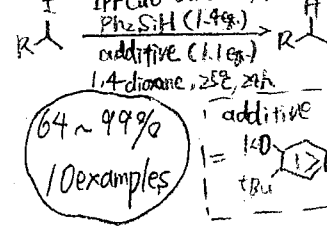 I H
IPrCuO
Ph₂SiH (1.4eq.)
R R
additive (1.1eq.)
1,4-dioxane, 25℃, 24h
64~99%
10examples
additive
= KO
tBu